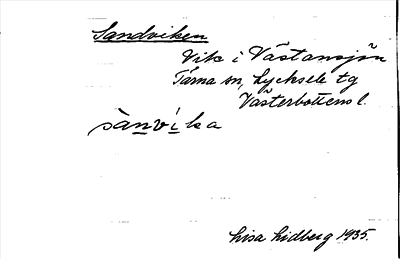 Sandviken
Vik i Västansjön
Tärna sn, Lycksele tg
Västerbottens l.
sànvíka
Lisa Lidberg 1935.